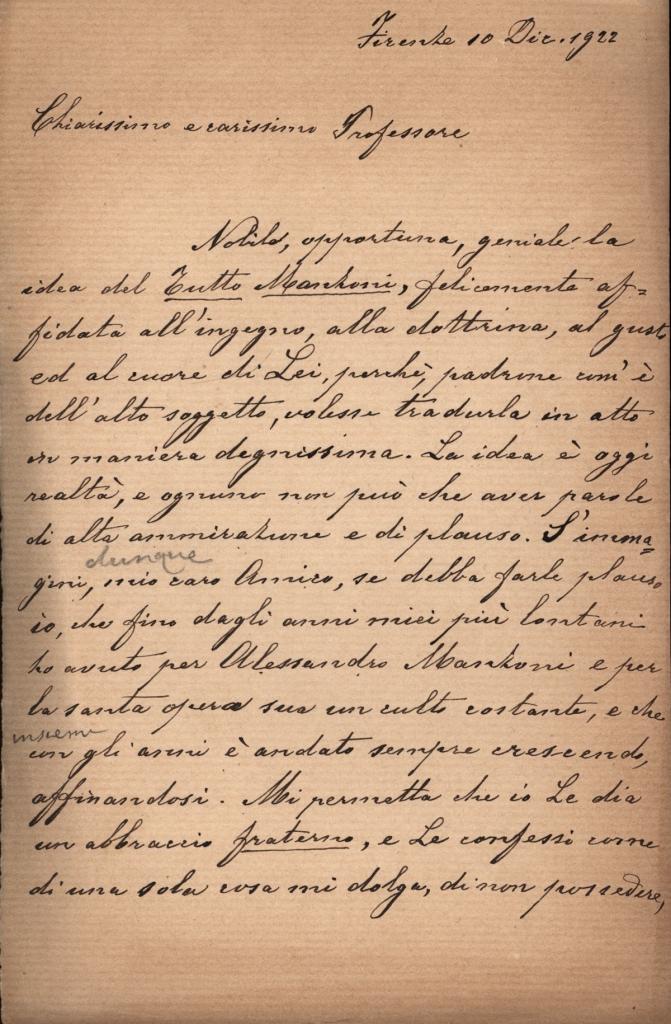 Firenze 10 Dic. 1922
Chiarissimo e carissimo Professore
Nobile, opportuna, geniale la
idea del Tutto Manzoni, felicemente af=
fidata all'ingegno, alla dottrina, al gusto
ed al cuore di Lei, perchè, padrone com'è
dell'alto soggetto, volesse tradurla in atto
in maniera degnissima. La idea è oggi
realtà, e ognuno non può che aver parole
di alta ammirazione e di plauso. S'imma=
dunque
gini, mio caro Amico, se debba farle plauso
io, che fino dagli anni miei più lontani
ho avuto per Alessandro Manzoni e per
la santa opera sua un culto costante, e che
insieme
con gli anni è andato sempre crescendo,
affinandosi. Mi permetta che io Le dia
un abbraccio fraterno, e Le confessi come
di una sola cosa mi dolga, di non possedere,